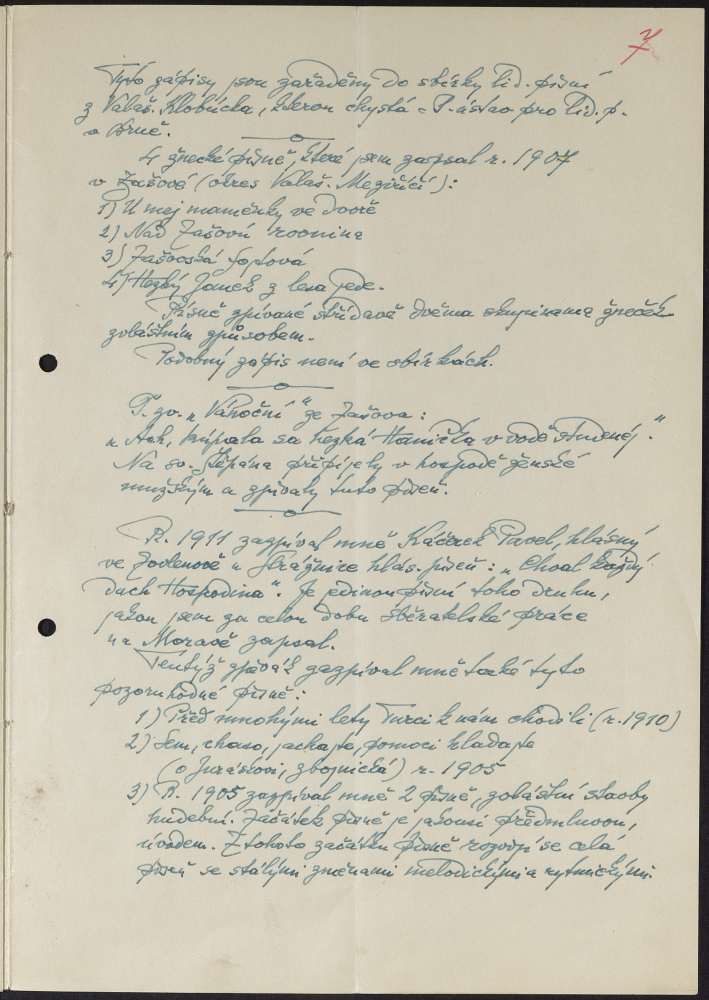 7
Tyto zápisy jsou zařaděny do sbírky lid. písní
z Valaš. Klobúcka, kterou chystá pro lid. p.
v Brně.
4 žnecké písně, které jsem zapsal r. 1907
v Zašové (okres Valaš. Meziříčí):
1) U mej maměnky ve dvoře
2) Nad Zašovú rovnina
3) Zašovská fojtová
4) Hezký Janek z lesa jede.
Písně zpívané střídavě dvěma skupinama žneček
zvláštním způsobem.
Podobný zápis není ve sbírkách.
T. zv. „Vánoční" ze Zašova:
„Ach, kúpala sa hezká Hanička v vodě studenéj."
Na sv. Štěpána připíjely v hospodě ženské
mužským a zpívaly tuto píseň.
R. 1911 zazpíval mně Káčerek Pavel, hlásný
ve Zvolenově u Strážnice hlás. píseň: „Chval každý
duch Hospodina". Je jedinou písní toho druhu,
jakou jsem za celou dobu sběratelské práce
na Moravě zapsal.
Tentýž zpěvák zazpíval mně také tyto
pozoruhodné písně:
1) Před mnohými lety Turci k nám chodili (r. 1910)
2) Sem, chaso, jachajte, pomoci hladajte
(o Juráškovi, zbojnická) r. 1905
3) R. 1905 zazpíval mně 2 písně, zvláštní stavby
hudební. Začátek písně je jakousi předmluvou,
úvodem. Z tohoto začátku písně rozvojí se celá
píseň se stálými změnami melodickými a rytmickými.